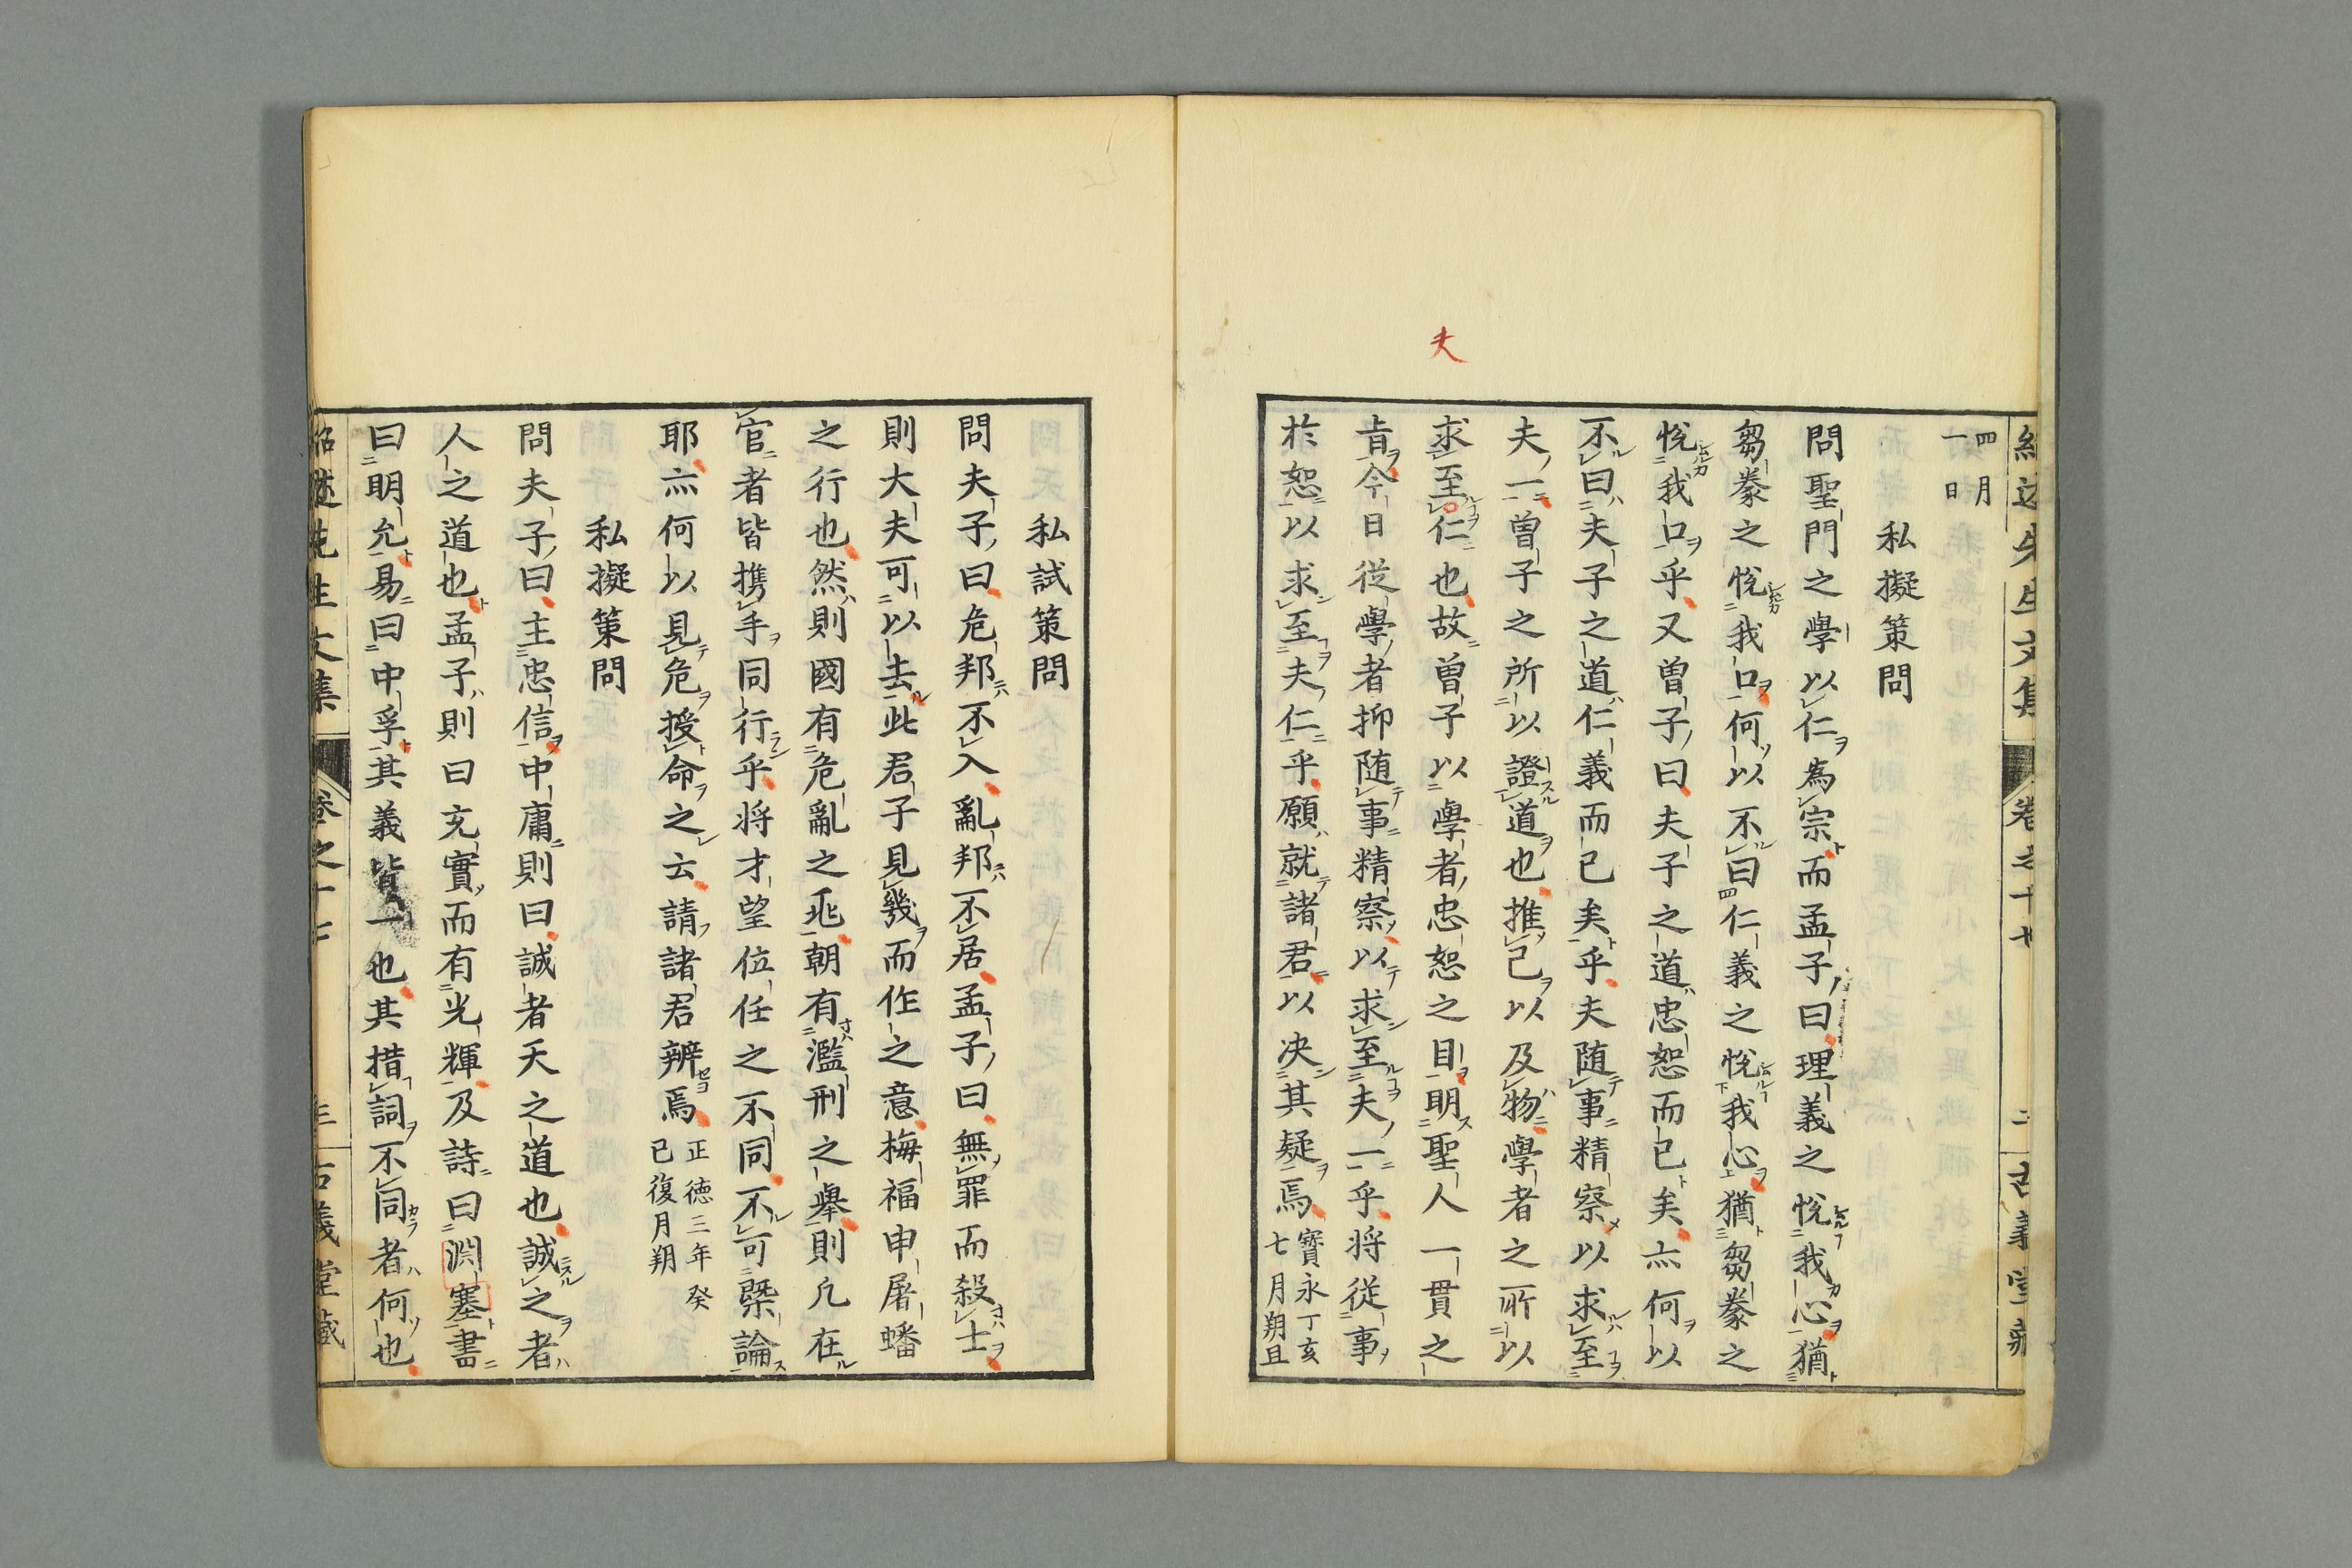 四月
一日
私擬策問
問聖門之學以仁為宗而孟子曰理義之悅我心猶
芻豢之悅我口何以不曰仁義之悅我心猶芻豢之
悅我口乎又曽子曰夫子之道忠恕而已矣亦何以
不曰夫子之道仁義而已矣乎夫随事精察以求至
夫一曽子之所以證道也推己以及物學者之所以
求至仁也故曽子以學者忠恕之目明聖人一貫之
肯今日從學者抑随事精察以求至夫一乎将從事
於恕以求至夫仁乎願就諸君以决其疑焉寳永丁亥
七月朔旦
夫
私試策問
問夫子曰危邦不入亂邦不居孟子曰無罪而殺士
則大夫可以去此君子見幾而作之意梅福申屠蟠
之行也然則國有危亂之兆朝有濫刑之舉則凢在
官者皆携手同行乎将才望位任之不同不可槩論
耶亦何以見危授命之云請諸君辨焉正徳三年癸
已復月朔
私擬策問
問夫子曰主忠信中庸則曰誠者天之道也誠之者
人之道也孟子則曰充實而有光輝及詩曰淵塞書
曰明允易曰中孚其義皆一也其措詞不同者何也
卷之十七
古義堂藏